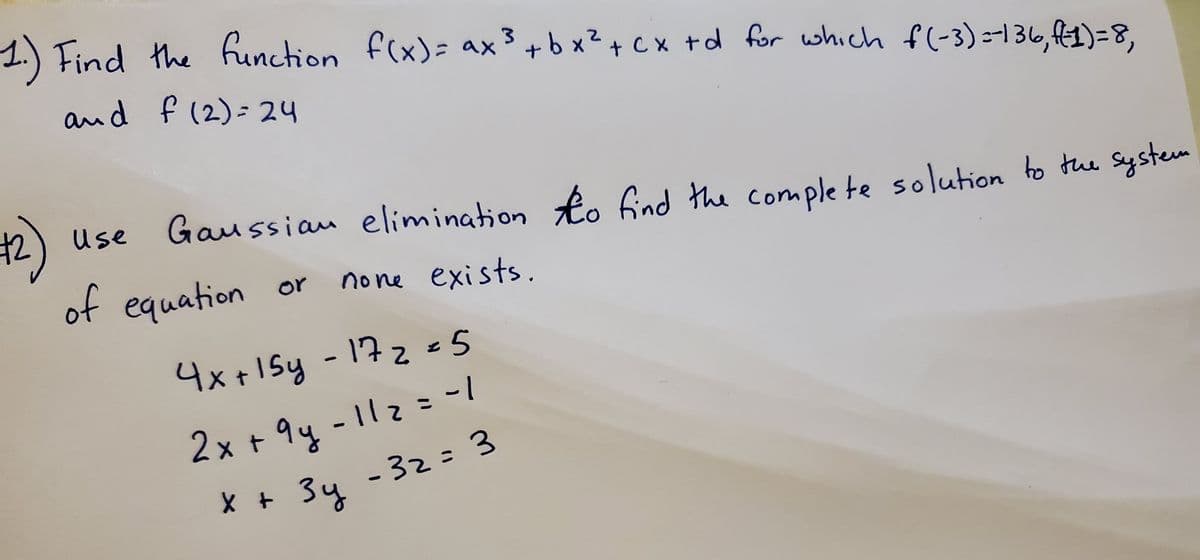 1.) Find the function f(x)= ax³+bx²+cx+d for which f(-3)=-136, f(-1)=8,
and f(2)=24
#2) use Gaussian elimination to find the complete solution to the system
of equation or none exists.
4x+15y-17z=5
2x+9y-11z=-1
x+3y-3z=3